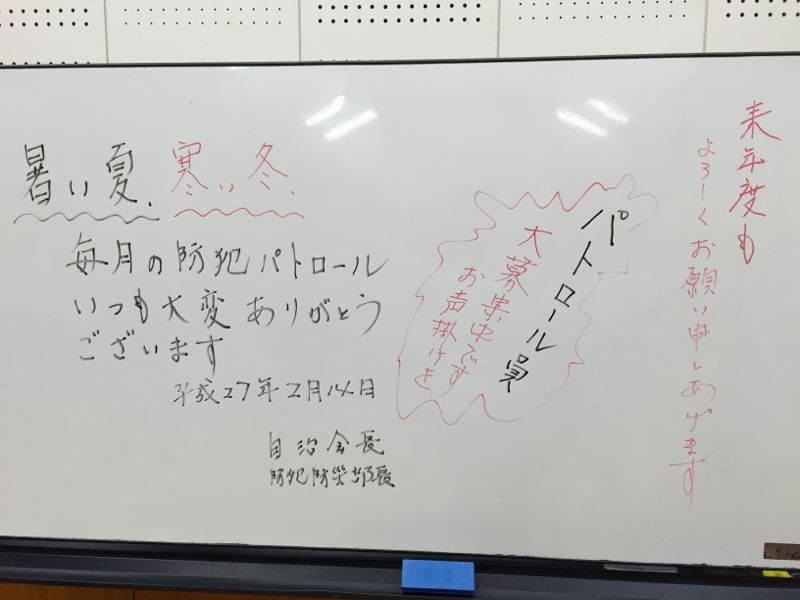 暑い夏、寒い冬、
毎月の防犯パトロール
いつも大変ありがとう
ございます
平成27年2月14日
自治会長
防犯防災部長
パトロール員
大募集中です
お声掛けを
来年度も
よろしくお願い申しあげます